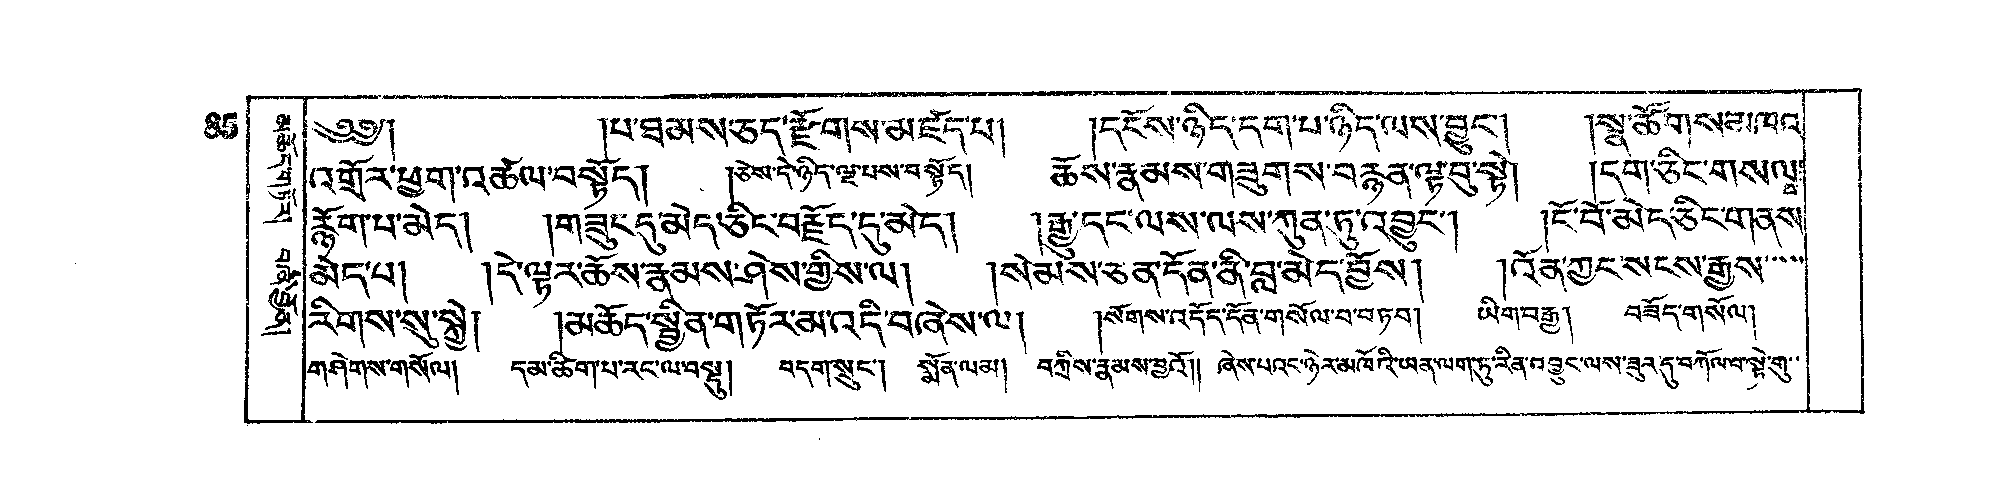 85
མཆོད་གཏོར། བཅོ་བརྒྱད།
༄༅། །པ་ཐམས་ཅད་རྫོགས་མཛོད་པ། །དངོས་ཉིད་དག་པ་ཉིད་ལས་བྱུང་། །སྣ་ཚོགས་ཟ་ལ་བ
འགྲོར་ཕྱག་འཚལ་བསྟོད། །ཅེས་དེ་ཉིད་ལྔ་པས་བསྟོད། ཆོས་རྣམས་གཟུགས་བརྙན་ལྟ་བུ་སྟེ། །དག་ཅིང་གསལ་ལ
རྙོག་པ་མེད། །གཟུང་དུ་མེད་ཅིང་བརྗོད་དུ་མེད། །རྒྱུ་དང་ལས་ལས་ཀུན་ཏུ་འབྱུང་། །ངོ་བོ་མེད་ཅིང་གནས
མེད་པ། །དེ་ལྟར་ཆོས་རྣམས་ཤེས་གྱིས་ལ། །སེམས་ཅན་དོན་ནི་བླ་མེད་བྱོས། །འོན་ཀྱང་སངས་རྒྱས
རིགས་སུ་སྐྱེ། །མཆོད་སྦྱིན་གཏོར་མ་འདི་བཞེས་ལ། །སོགས་འདོད་དོན་གསོལ་བ་བཏབ། ཡིག་བརྒྱ། བཟོད་གསོལ།
གཤེགས་གསོལ། དམ་ཚིག་པ་རང་ལ་བསྡུ། བདག་སྲུང་། སྨོན་ལམ། བཀྲིས་རྣམས་བྱའོ།། ཞེས་པའང་ཉེར་མཁོའི་ཡན་ལག་ཏུ་རིན་འབྱུང་ལས་ཟུར་དུ་བཀོལ་བ་སྟེ་གུ